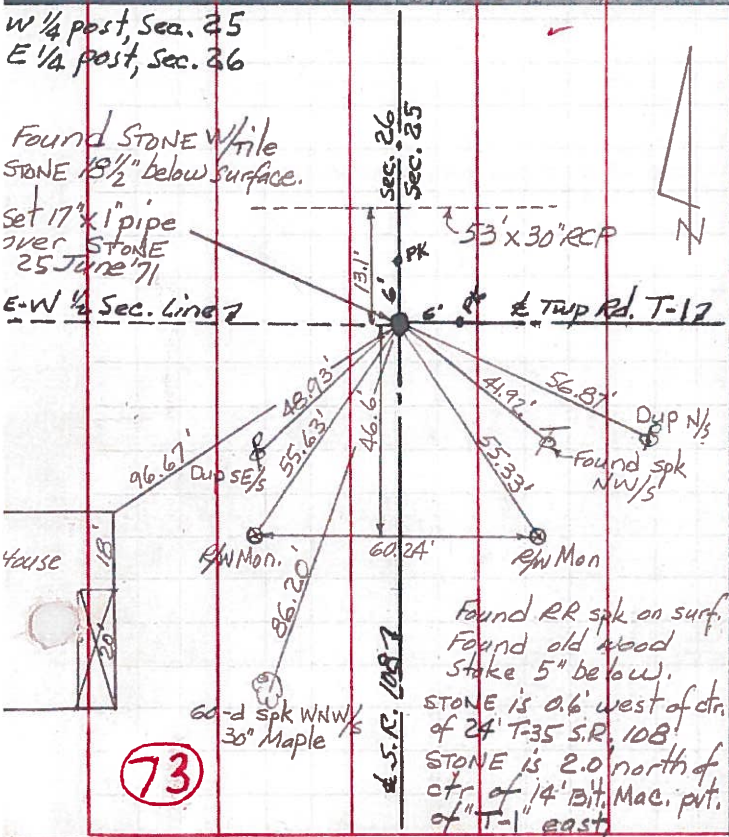 W 1/4 post, Sec. 25
E 1/4 post, Sec. 26
Found STONE W/tile
STONE 18 1/2" below surface.
Set 17" x 1" pipe
over STONE
25 June '71
E-W 1/2 Sec. Line
Sec. 26
Sec. 25
53' x 30" RCP
N
PK
13.1'
6'
6'
PK
℄ Twp Rd. T-17
48.93'
55.63'
46.6'
41.92'
56.87'
55.33'
96.67'
Dup SE/s
Dup N/s
Found spk
NW/s
House
18'
20'
R/W Mon.
60.24'
R/W Mon
86.20'
60-d spk WNW/s
30" Maple
℄ S.R. 108
Found RR spk on surf.
Found old wood
Stake 5" below.
STONE is 0.6' west of ctr.
of 24' T-35 S.R. 108
STONE is 2.0' north of
ctr of 14' Bit. Mac. pvt.
of "T-1" east
73